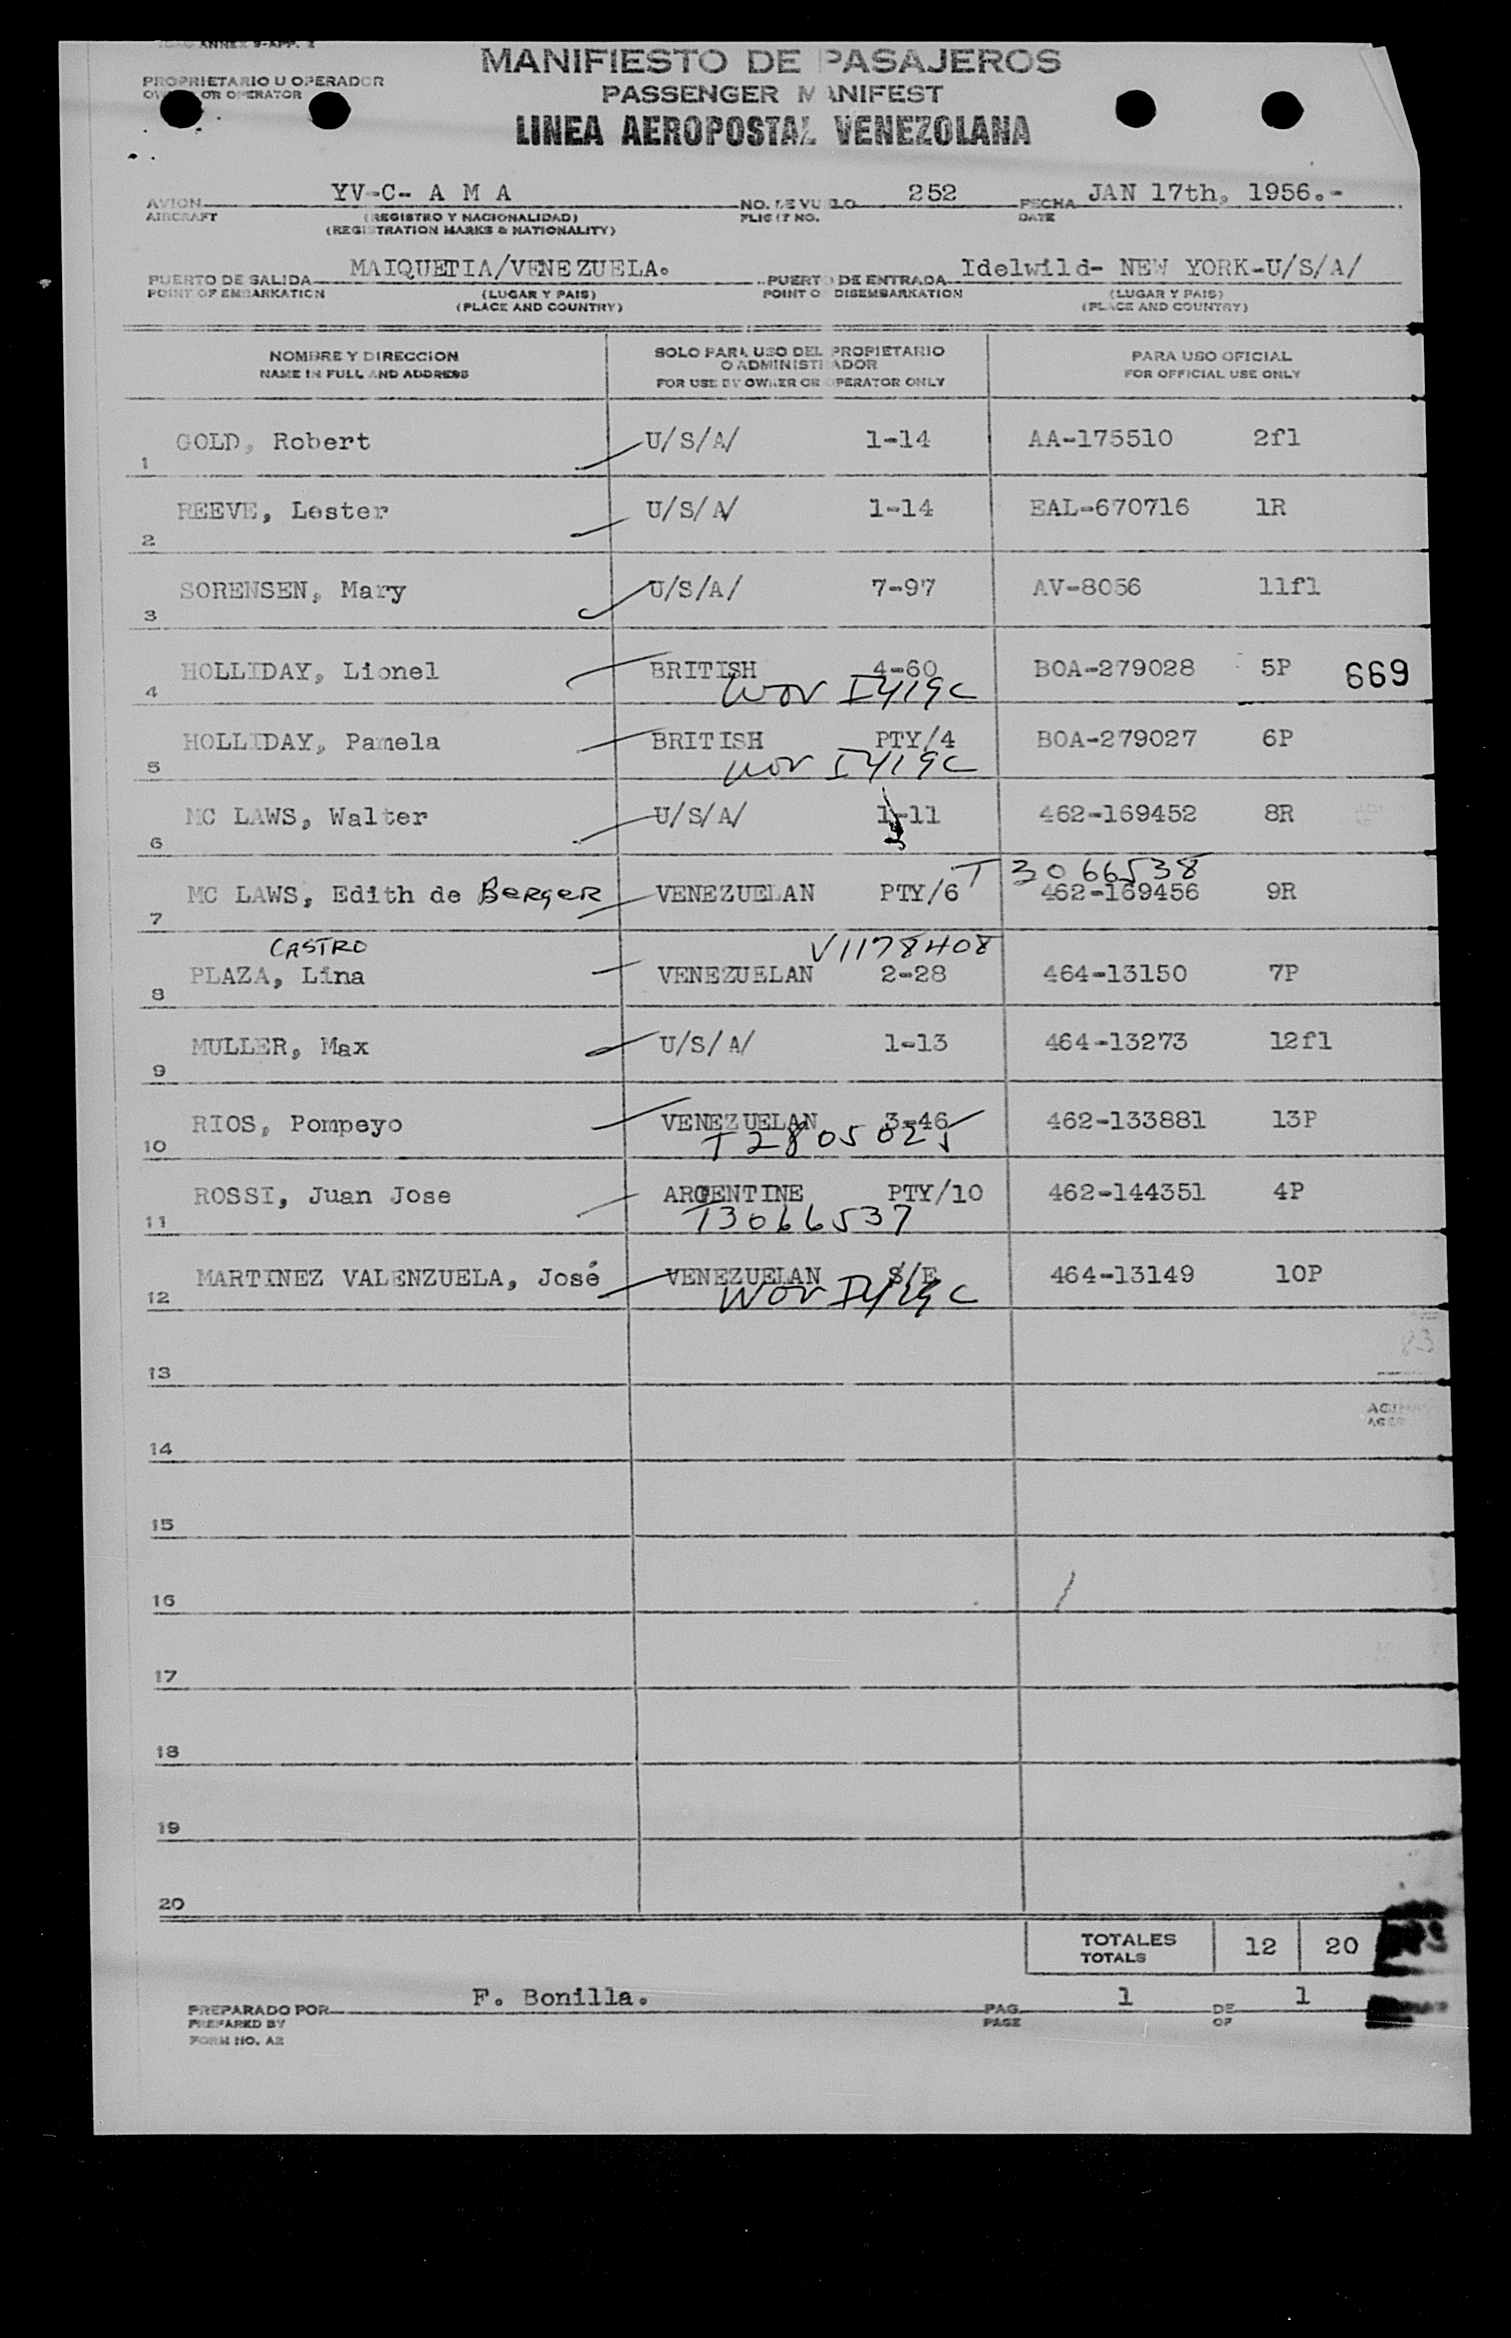 ICAO ANNEX 9-APP. 2
MANIFIESTO DE PASAJEROS
PROPRIETARIO U OPERADOR
OWNER OR OPERATOR
PASSENGER MANIFEST
LINEA AEROPOSTAL VENEZOLANA
AVION YV-C- A M A NO. DE VUELO 252 FECHA JAN 17th, 1956.-
AIRCRAFT (REGISTRO Y NACIONALIDAD) FLIGHT NO. DATE
(REGISTRATION MARKS & NATIONALITY)
PUERTO DE SALIDA MAIQUETIA/VENEZUELA. PUERTO DE ENTRADA Idelwild- NEW YORK-U/S/A/
POINT OF EMBARKATION (LUGAR Y PAIS) POINT OF DISEMBARKATION (LUGAR Y PAIS)
(PLACE AND COUNTRY) (PLACE AND COUNTRY)
NOMBRE Y DIRECCION SOLO PARA USO DEL PROPIETARIO PARA USO OFICIAL
O ADMINISTRADOR
NAME IN FULL AND ADDRESS FOR USE BY OWNER OR OPERATOR ONLY FOR OFFICIAL USE ONLY
1 GOLD, Robert U/S/A/ 1-14 AA-175510 2fl
2 REEVE, Lester U/S/A/ 1-14 EAL-670716 1R
3 SORENSEN, Mary U/S/A/ 7-97 AV-8056 11fl
4 HOLLIDAY, Lionel BRITISH 4-60 BOA-279028 5P 669
5 HOLLIDAY, Pamela BRITISH PTY/4 BOA-279027 6P
6 MC LAWS, Walter U/S/A/ 1-11 462-169452 8R
T 3066538
7 MC LAWS, Edith de Berger VENEZUELAN PTY/6 462-169456 9R
CASTRO V1178408
8 PLAZA, Lina VENEZUELAN 2-28 464-13150 7P
9 MULLER, Max U/S/A/ 1-13 464-13273 12fl
10 RIOS, Pompeyo VENEZUELAN 3-46 462-133881 13P
T 2805025
11 ROSSI, Juan Jose ARGENTINE PTY/10 462-144351 4P
T3066537
12 MARTINEZ VALENZUELA, José VENEZUELAN S/E 464-13149 10P
13
14
15
16
17
18
19
20
TOTALES 12 20
TOTALS
PREPARADO POR F. Bonilla. PAG. 1 DE 1
PREPARED BY PAGE OF
FORM NO. A2